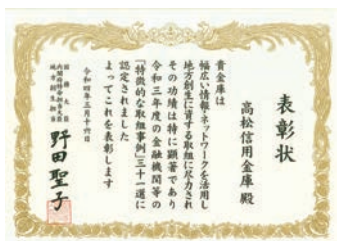 表彰状
高松信用金庫殿
貴金庫は
幅広い情報・ネットワークを活用し
地方創生に資する取組に尽力され
その功績は特に顕著であり
令和三年度の金融機関等の
「特徴的な取組事例」三十一選に
認定されました
よってこれを表彰します
令和四年三月十六日
国務大臣
内閣府特命担当大臣
地方創生担当
野田聖子